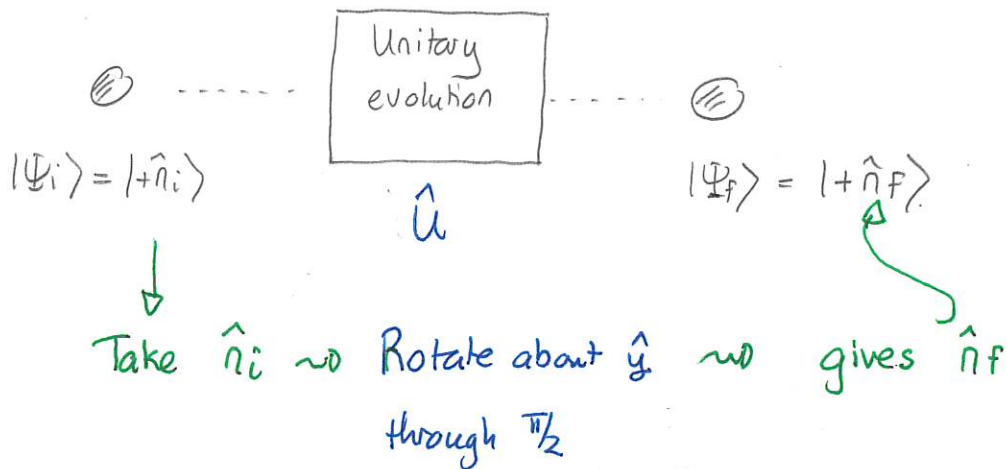 Unitary
evolution
|Ψi⟩ = |+n̂i⟩
Û
|Ψf⟩ = |+n̂f⟩
Take n̂i ⇝ Rotate about ŷ ⇝ gives n̂f
through π/2